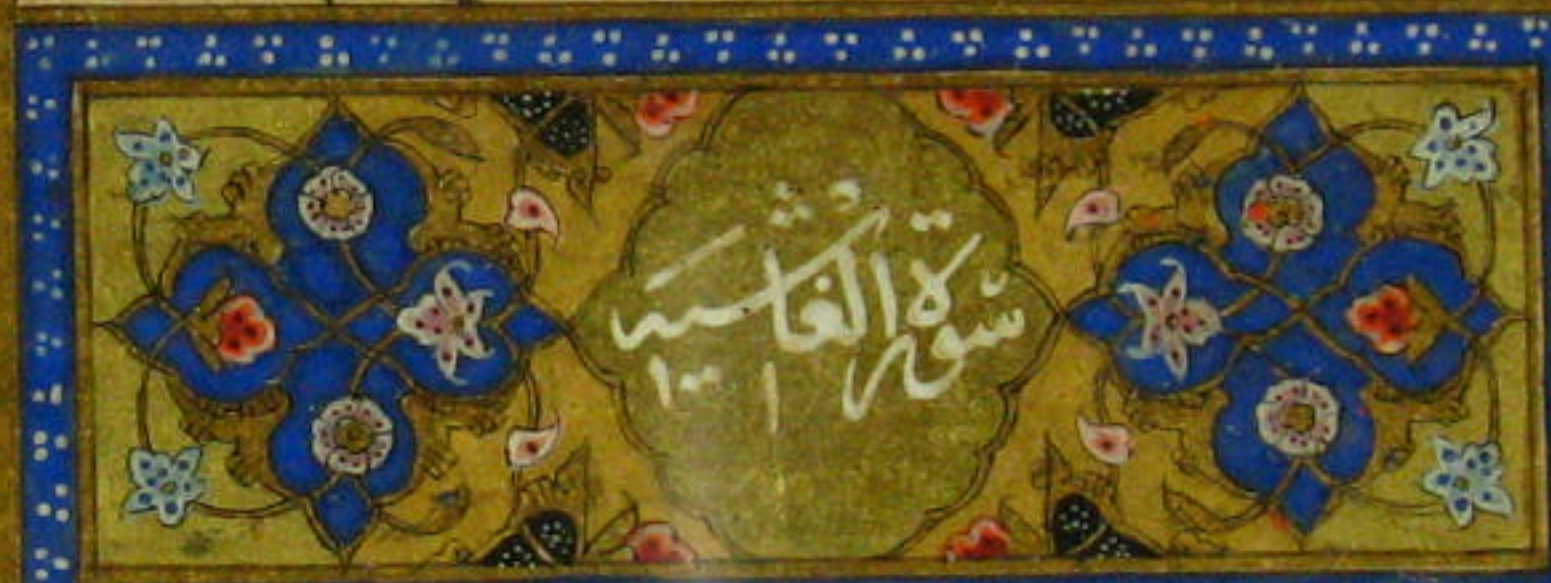 سورة الغاشية